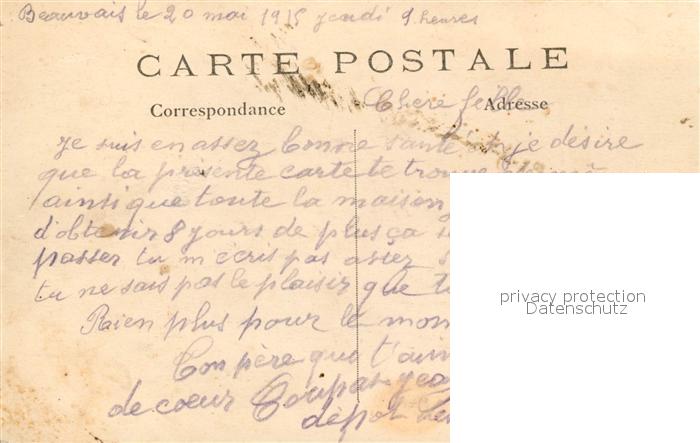 Beauvais le 20 mai 1915 jeudi 9 heures
CARTE POSTALE
Correspondance
Adresse
Chere fille
Je suis en assez bonne santé et je désire
que la présente carte te trouve
ainsi que toute la maison
d'obtenir 8 yours de plus ça
passer tu m'ecris pas assez
tu ne sais pas le plaisir que
Raien plus pour le mom
Ton père qui t'aim
de coeur Coupat
dépot
privacy protection
Datenschutz